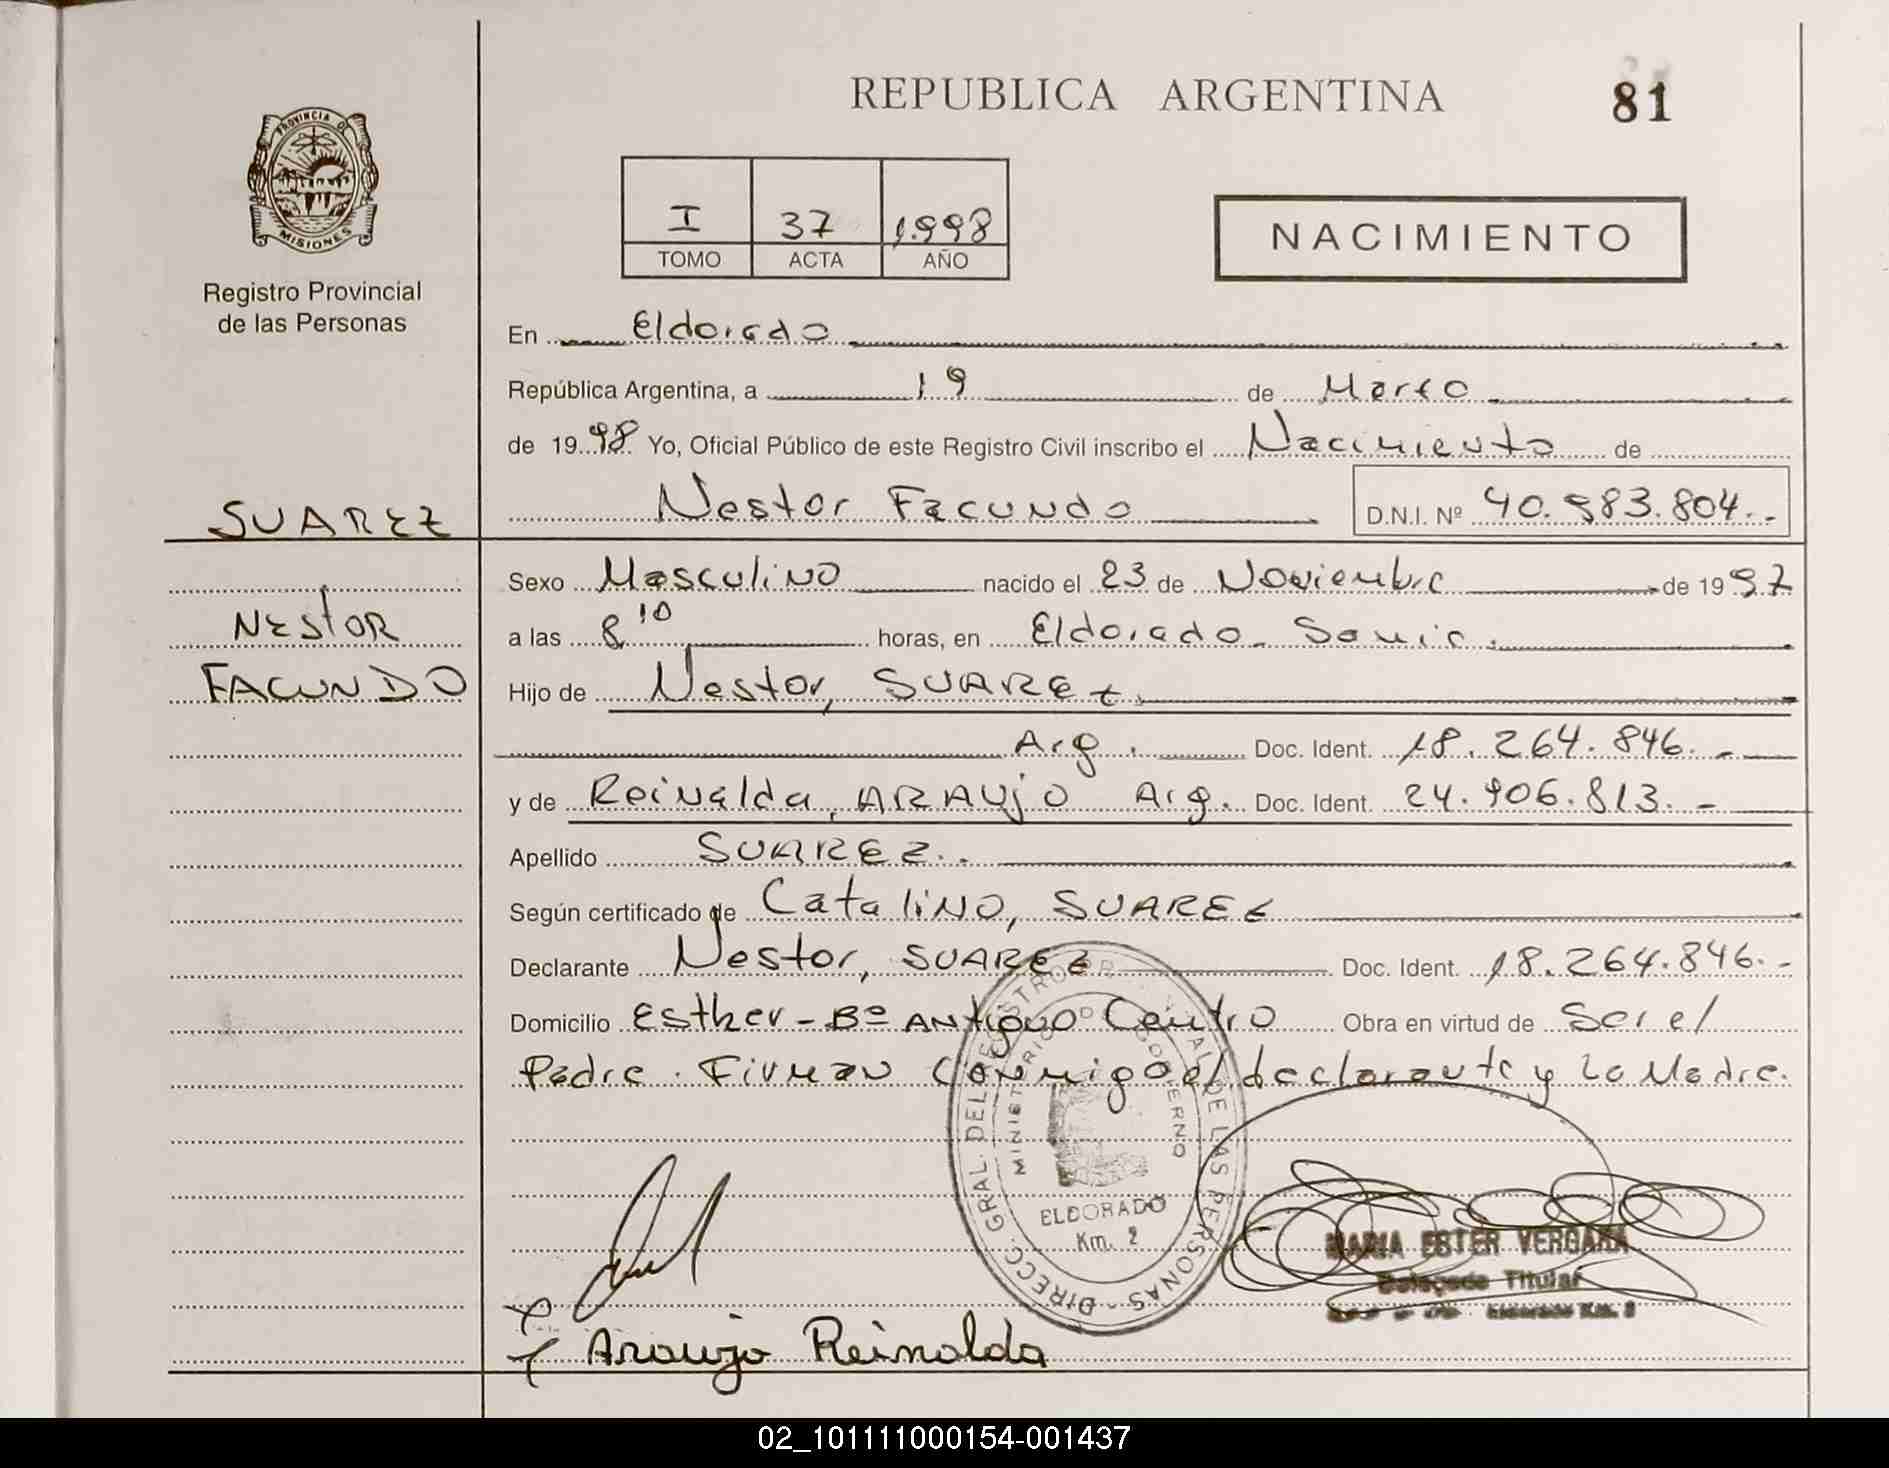 REPUBLICA ARGENTINA
81
PROVINCIA DE
MISIONES
Registro Provincial
de las Personas
I 37 1.998
TOMO ACTA AÑO
NACIMIENTO
En Eldorado
República Argentina, a 19 de Marzo
de 1998 Yo, Oficial Público de este Registro Civil inscribo el Nacimiento de
SUAREZ
Nestor Facundo D.N.I. Nº 40.983.804.-
Sexo Masculino nacido el 23 de Noviembre de 1997
NESTOR
a las 8 10 horas, en Eldorado - Samic.
FACUNDO
Hijo de Nestor, SUAREZ.
Arg. Doc. Ident. 18.264.846.-
y de Reinalda, ARAUJO Arg. Doc. Ident. 24.906.813.-
Apellido SUAREZ.
Según certificado de Catalino, SUAREZ
Declarante Nestor, SUAREZ Doc. Ident. 18.264.846.-
Domicilio Esther - Bº ANtiguo Centro Obra en virtud de Ser el
Padre. Firman Conmigo el declarante y La Madre.
DIRECC. GRAL. DEL REGISTRO PROVINCIAL DE LAS PERSONAS
MINISTERIO DE GOBIERNO
ELDORADO
Km. 2
MARIA ESTER VERGARA
Delegada Titular
Eldorado Km. 2
Araujo Reinalda
02_101111000154-001437